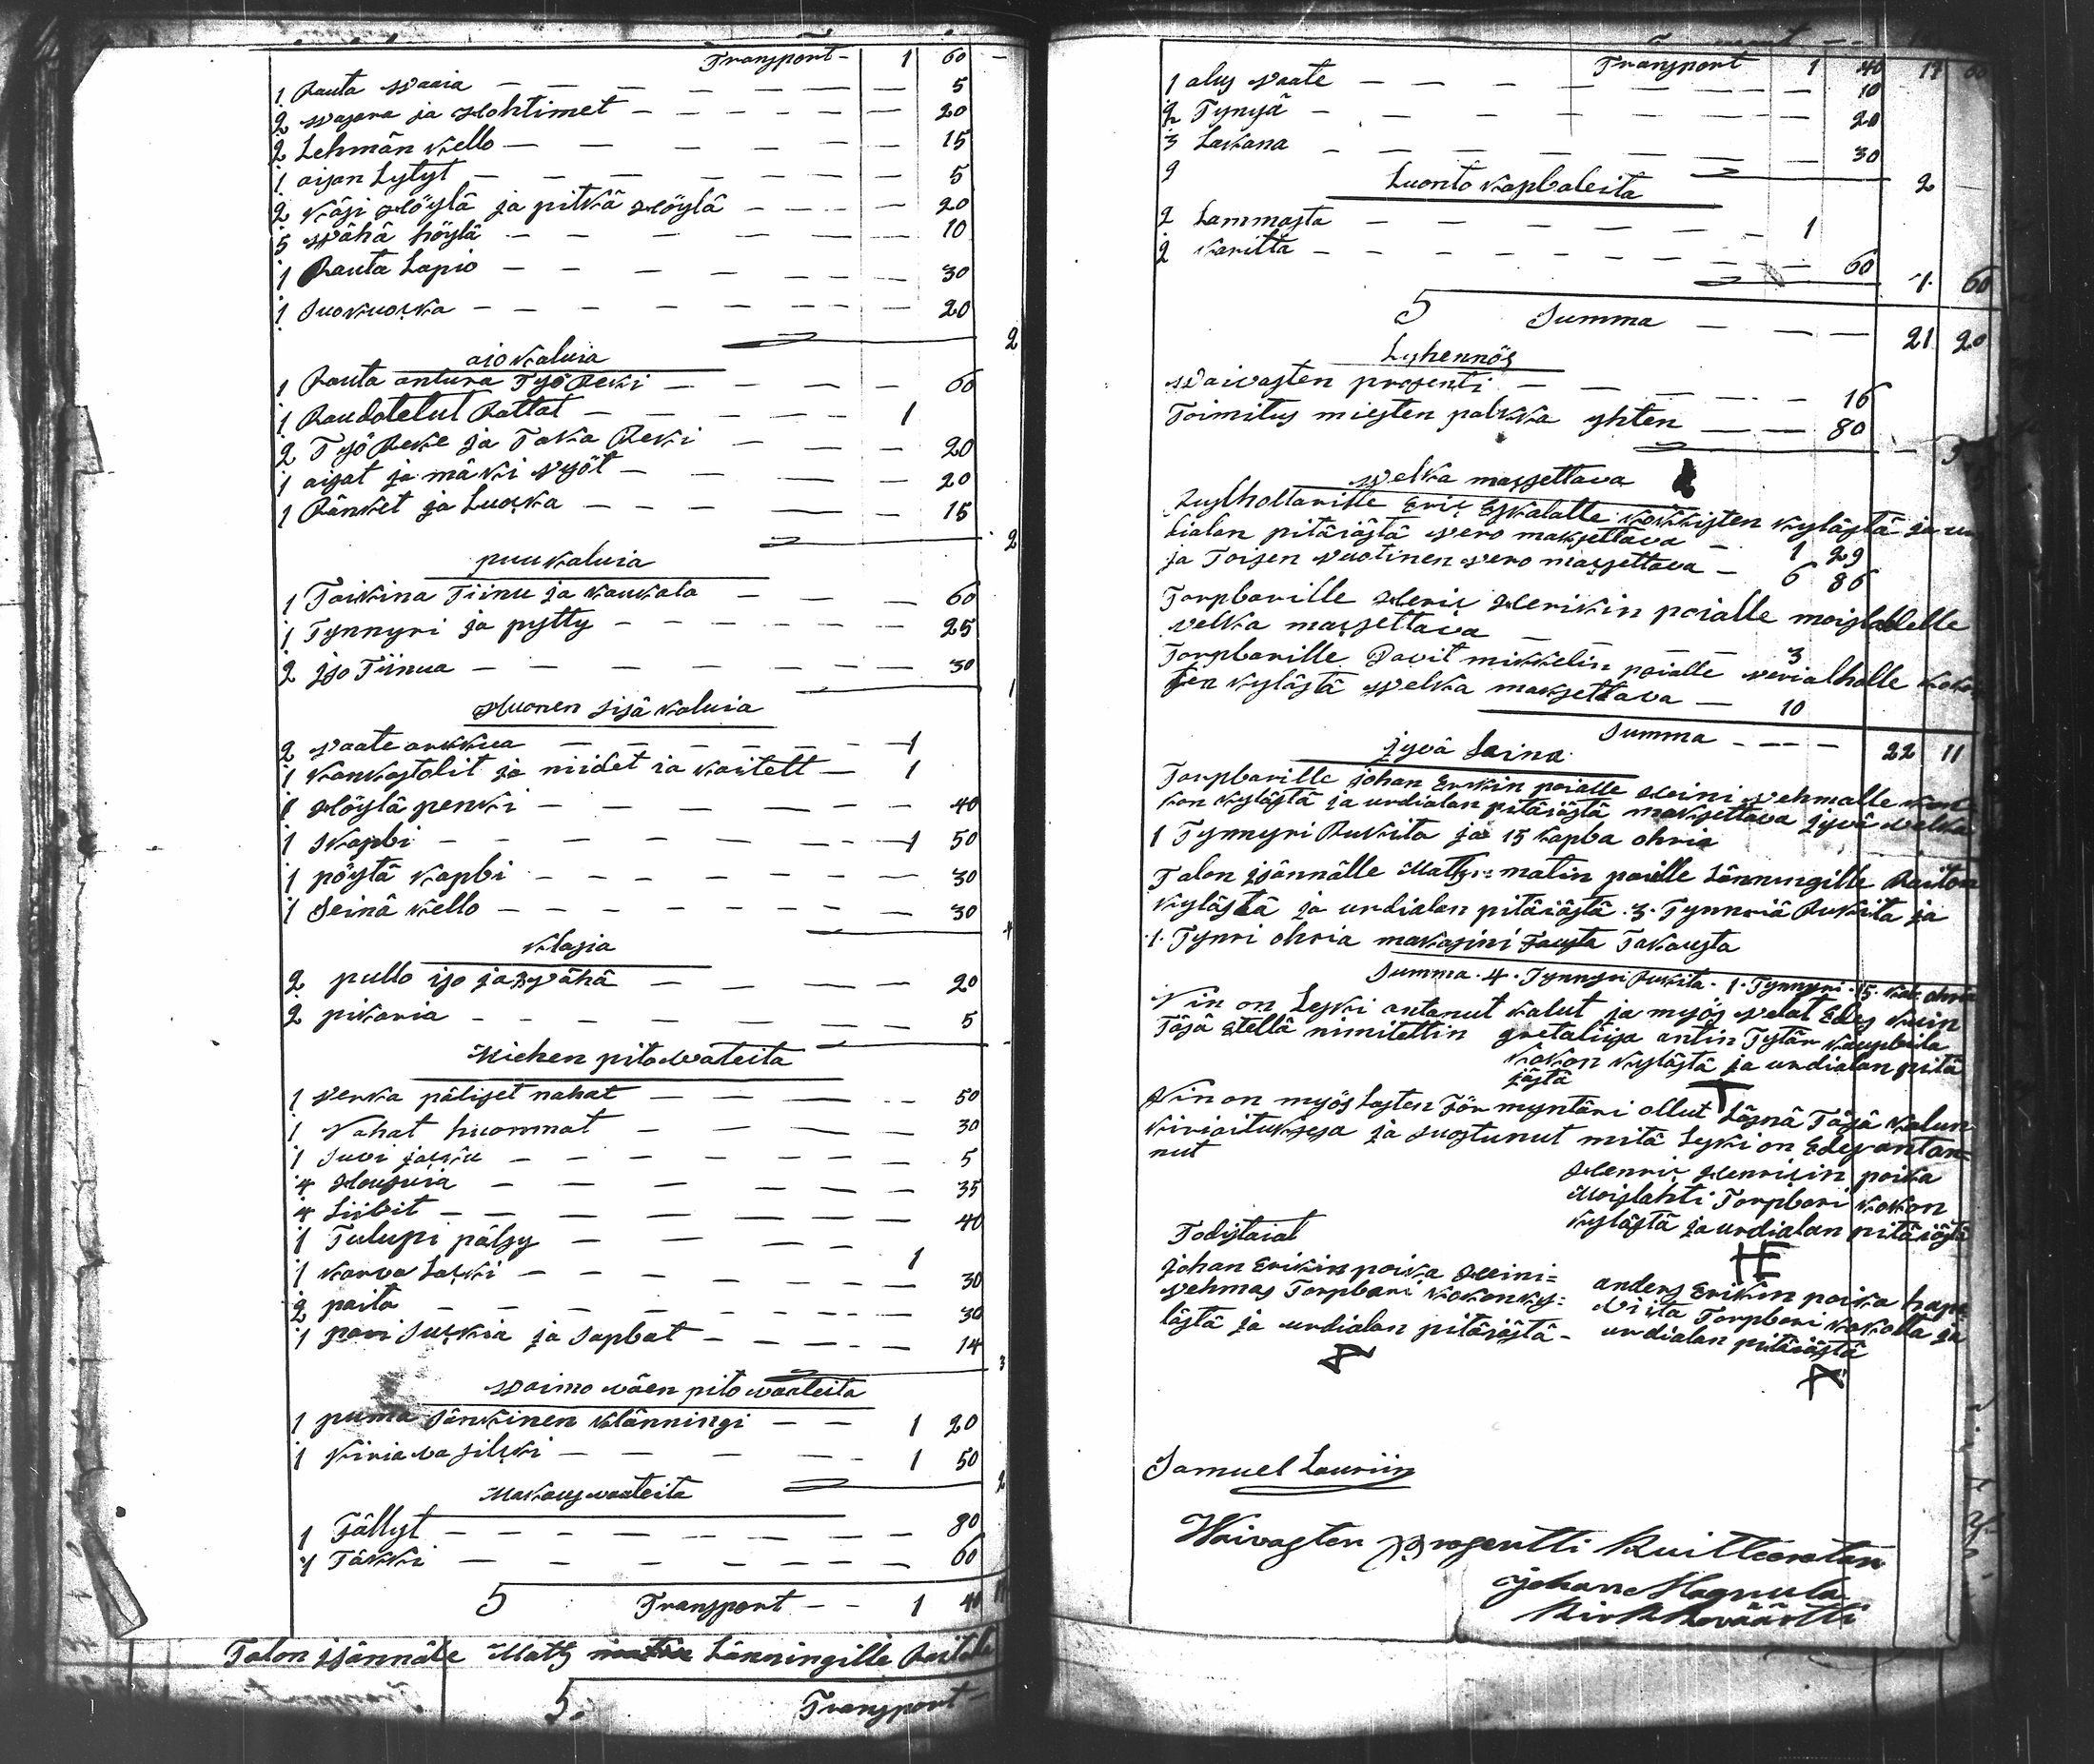 Transport - 1 60 -
1 Rauta Waaia - - - - - 5
2 Wasara ja Hohtimet - - - - 20
2 Lehmän Kello - - - - - 15
1 aisan Lytyt - - - - - 5
2 Käsi Höylä ja pitkä Höylä - - - 20
5 Wähä höylä - - - - - 10
1 Rauta Lapio - - - - - 30
1 Suokuocka - - - - - 20
2
aiokaluia
1 Rauta antura Työ Reki - - - - 60
1 Raudotetut Rattat - - - - 1
2 Työ Reke ja Taka Reki - - - 20
1 aisat ja mäki Wyöt - - - - 20
1 Ränket ja Luocka - - - - 15
2
puukaluia
1 Taikina Tiinu ja kaukalo - - - 60
1 Tynnyri ja pytty - - - - 25
2 jso Tiinua - - - - - 30
1
Huonen sisä kaluia
2 Waate arkkua - - - - 1
1 Kankastolit ja niidet ia kaitett - 1
1 Höylä penki - - - - - 40
1 Skapbi - - - - - 1 50
1 pöytä Kapbi - - - - - 30
1 Seinä Kello - - - - - 30
4
Klasia
2 pullo iso ja wähä - - - 20
2 pikaria - - - - - 5
Miehen pitowateita
1 Verka päliset nahat - - - - 50
1 Nahat huommat - - - - 30
1 Suvi jacku - - - - - 5
4 Housuia - - - - - 35
4 Liibit - - - - - 40
1 Tulupi pälsy - - - - 1
1 Karva Lacki - - - - - 30
2 paita - - - - - 30
1 pari Suckia ja Sapbat - - - - 14
3
Waimo väen pito waateita
1 puma Sänkinen Klänningi - - 1 20
1 Kiriava silcki - - - - 1 50
2
Makaus waateita
1 Fällyt - - - - - 80
1 Täkki - - - - - 60
5 Transport - - 1 40
Talon isännäle Matts Länningille
5. Transport -
Transport 1 40 17 60
1 alus Waate - - - - - 10
2 Tynyä - - - - - 20
3 Lakana - - - - - 30
2 2 -
Luonto kapbaleita
2 Lammasta - - - - 1
2 Karitta - - - - - 60
1 60
5 Summa - - - 21 20
Lyhennös
Waivasten prosenti - - - 16
Toimitus miesten palkka yhten - - 80
Welka maxettava
Rusthollarille Eric Eskalalle Kokkisten Kylästä ja ur
dialan pitäiästä Wero maksettava - 1 29
ja Toisen Wuotinen Wero maxettava - 6 86
Torpbarille Heric Herikin poialle moislahdelle
velka maxettava - - - 3
Torpbarille Davit mikkelin poialle
sen Kylästä Welka maksettava - 10
Summa - - - 22 11
jyvä Laina
Torpbarille johan Erikin poialle Heini vehmalle kok
kon kylästä ja urdialan pitäiästä maksettava jyvä welka
1 Tynnyri Rukita ja 15 kapba ohria
Talon jsännälle Matts: matin poialle Länningille Raiton
Kylästä ja urdialan pitäiästä .3. Tynnriä Rukita ja
.1. Tynri ohria makasini
Summa .4. Tynnyri Rukita .1. Tynnyri .15. kab ohria
Nin on Leski antanut kalut ja myös velat Edes kuin
Täsä Etellä nimitettin gretalisa antin Tytär
kokon kylästä ja urdialan pitä
jästä
T
Nin on myös Lasten För myntäri ollut Läsnä Täsä kalun
kiriaituksesa ja suostunut mitä Leski on Edes antan=
nut
Henric Henricin poika
Moislahti Torpbari Kokon
kylästä ja urdialan pitäiästä
HE
Todistaiat
johan Erikin poika Heini=
vehmas Torpbari kokon ky=
lästä ja urdialan pitäiästä -
anders Erikin poika
Torpbari kokolla ja
urdialan pitäiästä
Samuel Lauriin
Waivasten Prosentti Kuitteeratan
Johan Magnula
Kirkkoväärtti